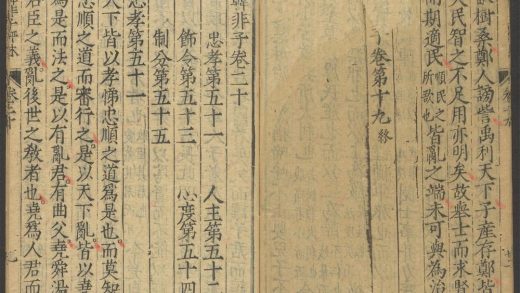 卷十九
樹桑鄭人謗訾禹利天下子產存鄭皆
民智之不足用亦明矣故舉士而求賢
期適民順民之所欲也皆亂之端未可與為治
子卷第十九終
韓非子卷二十
忠孝第五十一 人主第五十二
飭令第五十三 心度第五十四
制分第五十五
忠孝第五十一
天下皆以孝悌忠順之道爲是也而莫知
忠順之道而審行之是以天下亂皆以堯
爲是而法之是以有亂君有曲父堯舜湯
君臣之義亂後世之教者也堯爲人君而
卷二十